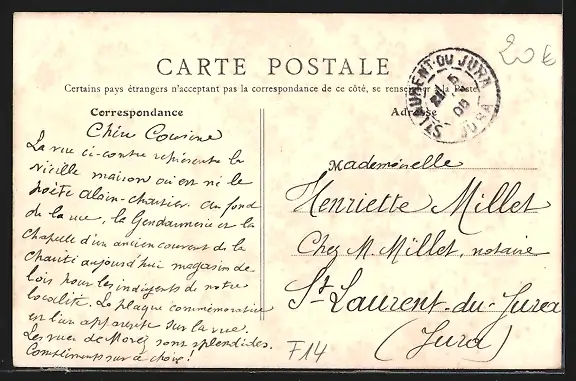 20€
CARTE POSTALE
Certains pays étrangers n'acceptant pas la correspondance de ce côté, se renseigner à la Poste
Correspondance
Adresse
ST LAURENT-DU-JURA
5
06
JURA
Chère Cousine
La vue ci-contre représente la
vieille maison où est né le
poète Alain-Chartier. Au fond
de la vue, la Gendarmerie et la
chapelle d'un ancien couvent de la
Charité aujourd'hui magasin de
bois pour les indigents de notre
localité. La plaque commémorative
est bien apparente sur la vue.
Les vues de Morez sont splendides.
Compliments sur à choix!
Mademoiselle
Henriette Millet
Chez M. Millet, notaire
St-Laurent-du-Jura
(Jura)
F14